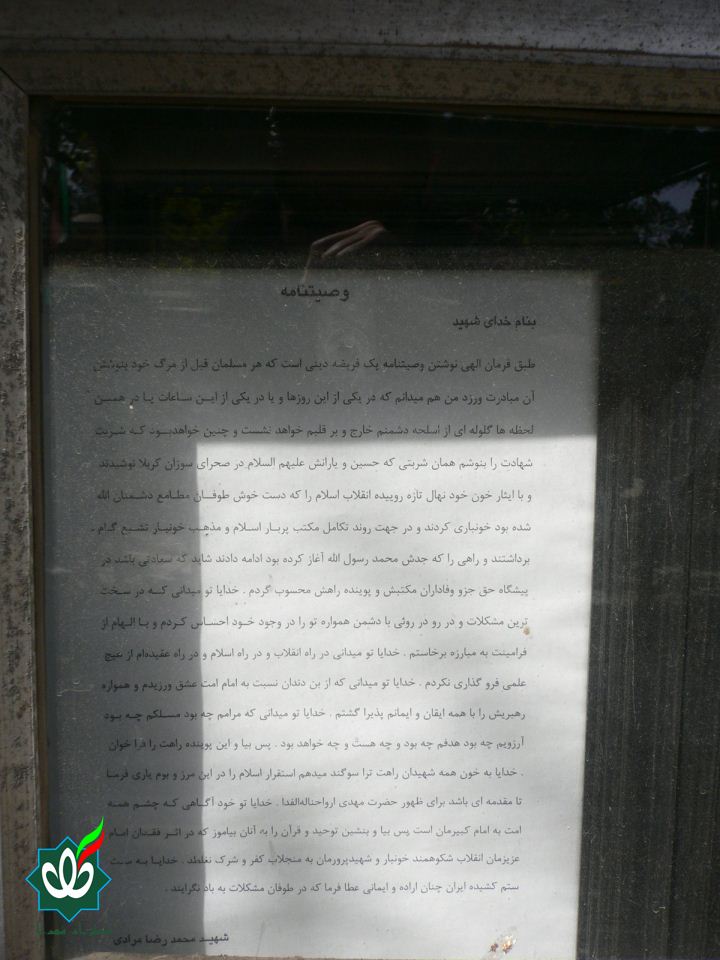 وصیتنامه
بنام خدای شهید
طبق فرمان الهی نوشتن وصیتنامه یک فریضه دینی است که هر مسلمان قبل از مرگ خود بنوشتن
آن مبادرت ورزد من هم میدانم که در یکی از این روزها و یا در یکی از ایــن ســاعات یــا در همیــن
لحظه ها گلوله ای از اسلحه دشمنم خارج و بر قلبم خواهد نشست و چنین خواهدبــود کــه شربت
شهادت را بنوشم همان شربتی که حسین و یارانش علیهم السلام در صحرای سوزان کربلا نوشیدند
و با ایثار خون خود نهال تازه روییده انقلاب اسلام را که دست خوش طوفــان مطــامع دشــمنان الله
شده بود خونباری کردند و در جهت روند تکامل مکتب پربــار اســلام و مذهــب خونبــار تشــیع گــام
برداشتند و راهی را که جدش محمد رسول الله آغاز کرده بود ادامه دادند شاید که سعادتی باشد در
پیشگاه حق جزو وفاداران مکتبش و پوینده راهش محسوب گردم . خدایا تو میدانی کــه در ســخت
ترین مشکلات و در رو در روئی با دشمن همواره تو را در وجود خــود احســاس کــردم و بــا الهــام از
فرامینت به مبارزه برخاستم . خدایا تو میدانی در راه انقلاب و در راه اسلام و در راه عقیده‌ام از هیچ
علمی فرو گذاری نکردم . خدایا تو میدانی که از بن دندان نسبت به امام امت عشق ورزیدم و همواره
رهبریش را با همه ایقان و ایمانم پذیرا گشتم . خدایا تو میدانی که مرامم چه بود مســلکم چــه بــود
آرزویم چه بود هدفم چه بود و چه هست و چه خواهد بود . پس بیا و این پوینده راهت را فرا خوان
. خدایا به خون همه شهیدان راهت ترا سوگند میدهم استقرار اسلام را در این مرز و بوم یاری فرمــا
تا مقدمه ای باشد برای ظهور حضرت مهدی ارواحناله‌الفدا . خدایا تو خود آگــاهی کــه چشــم همــه
امت به امام کبیرمان است پس بیا و بنشین توحید و قرآن را به آنان بیاموز که در اثــر فقــدان امــام
عزیزمان انقلاب شکوهمند خونبار و شهیدپرورمان به منجلاب کفر و شرک نغلطد . خدایــا بــه
ستم کشیده ایران چنان اراده و ایمانی عطا فرما که در طوفان مشکلات به باد نگرایند .
شهیــد محمد رضا مرادی